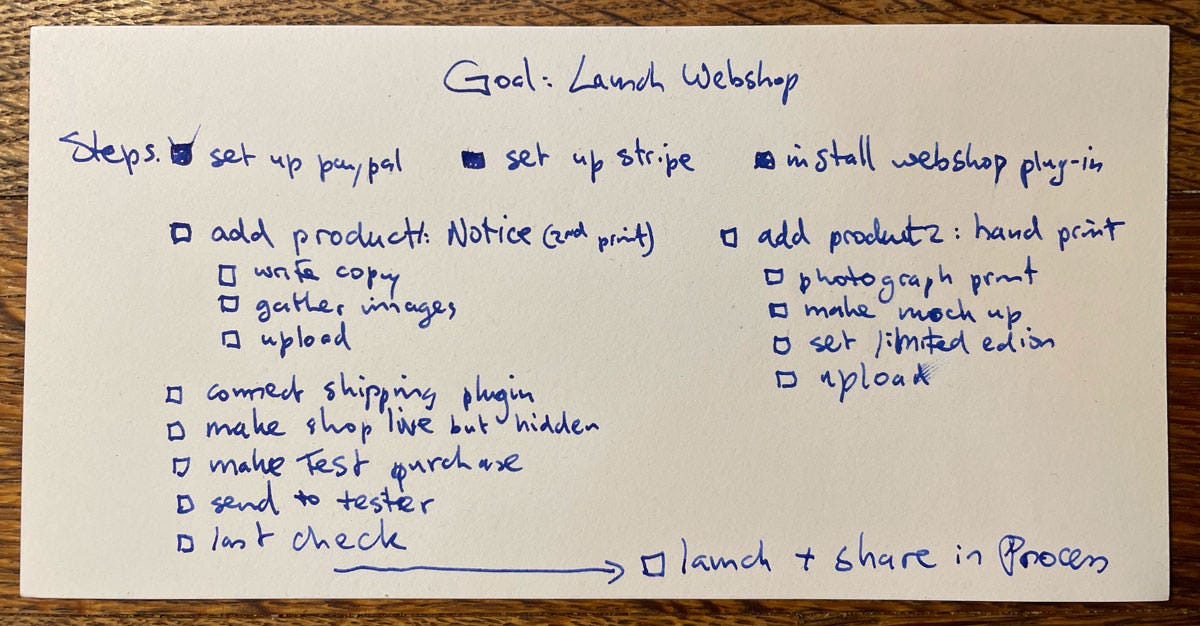 Goal: Launch Webshop
Steps: set up paypal set up stripe install webshop plug-in
add product 1: Notice (2nd print)
write copy
gather images
upload
add product 2: hand print
photograph print
make mock up
set limited edion
upload
connect shipping plugin
make shop live but hidden
make test purchase
send to tester
last check
launch + share in Process